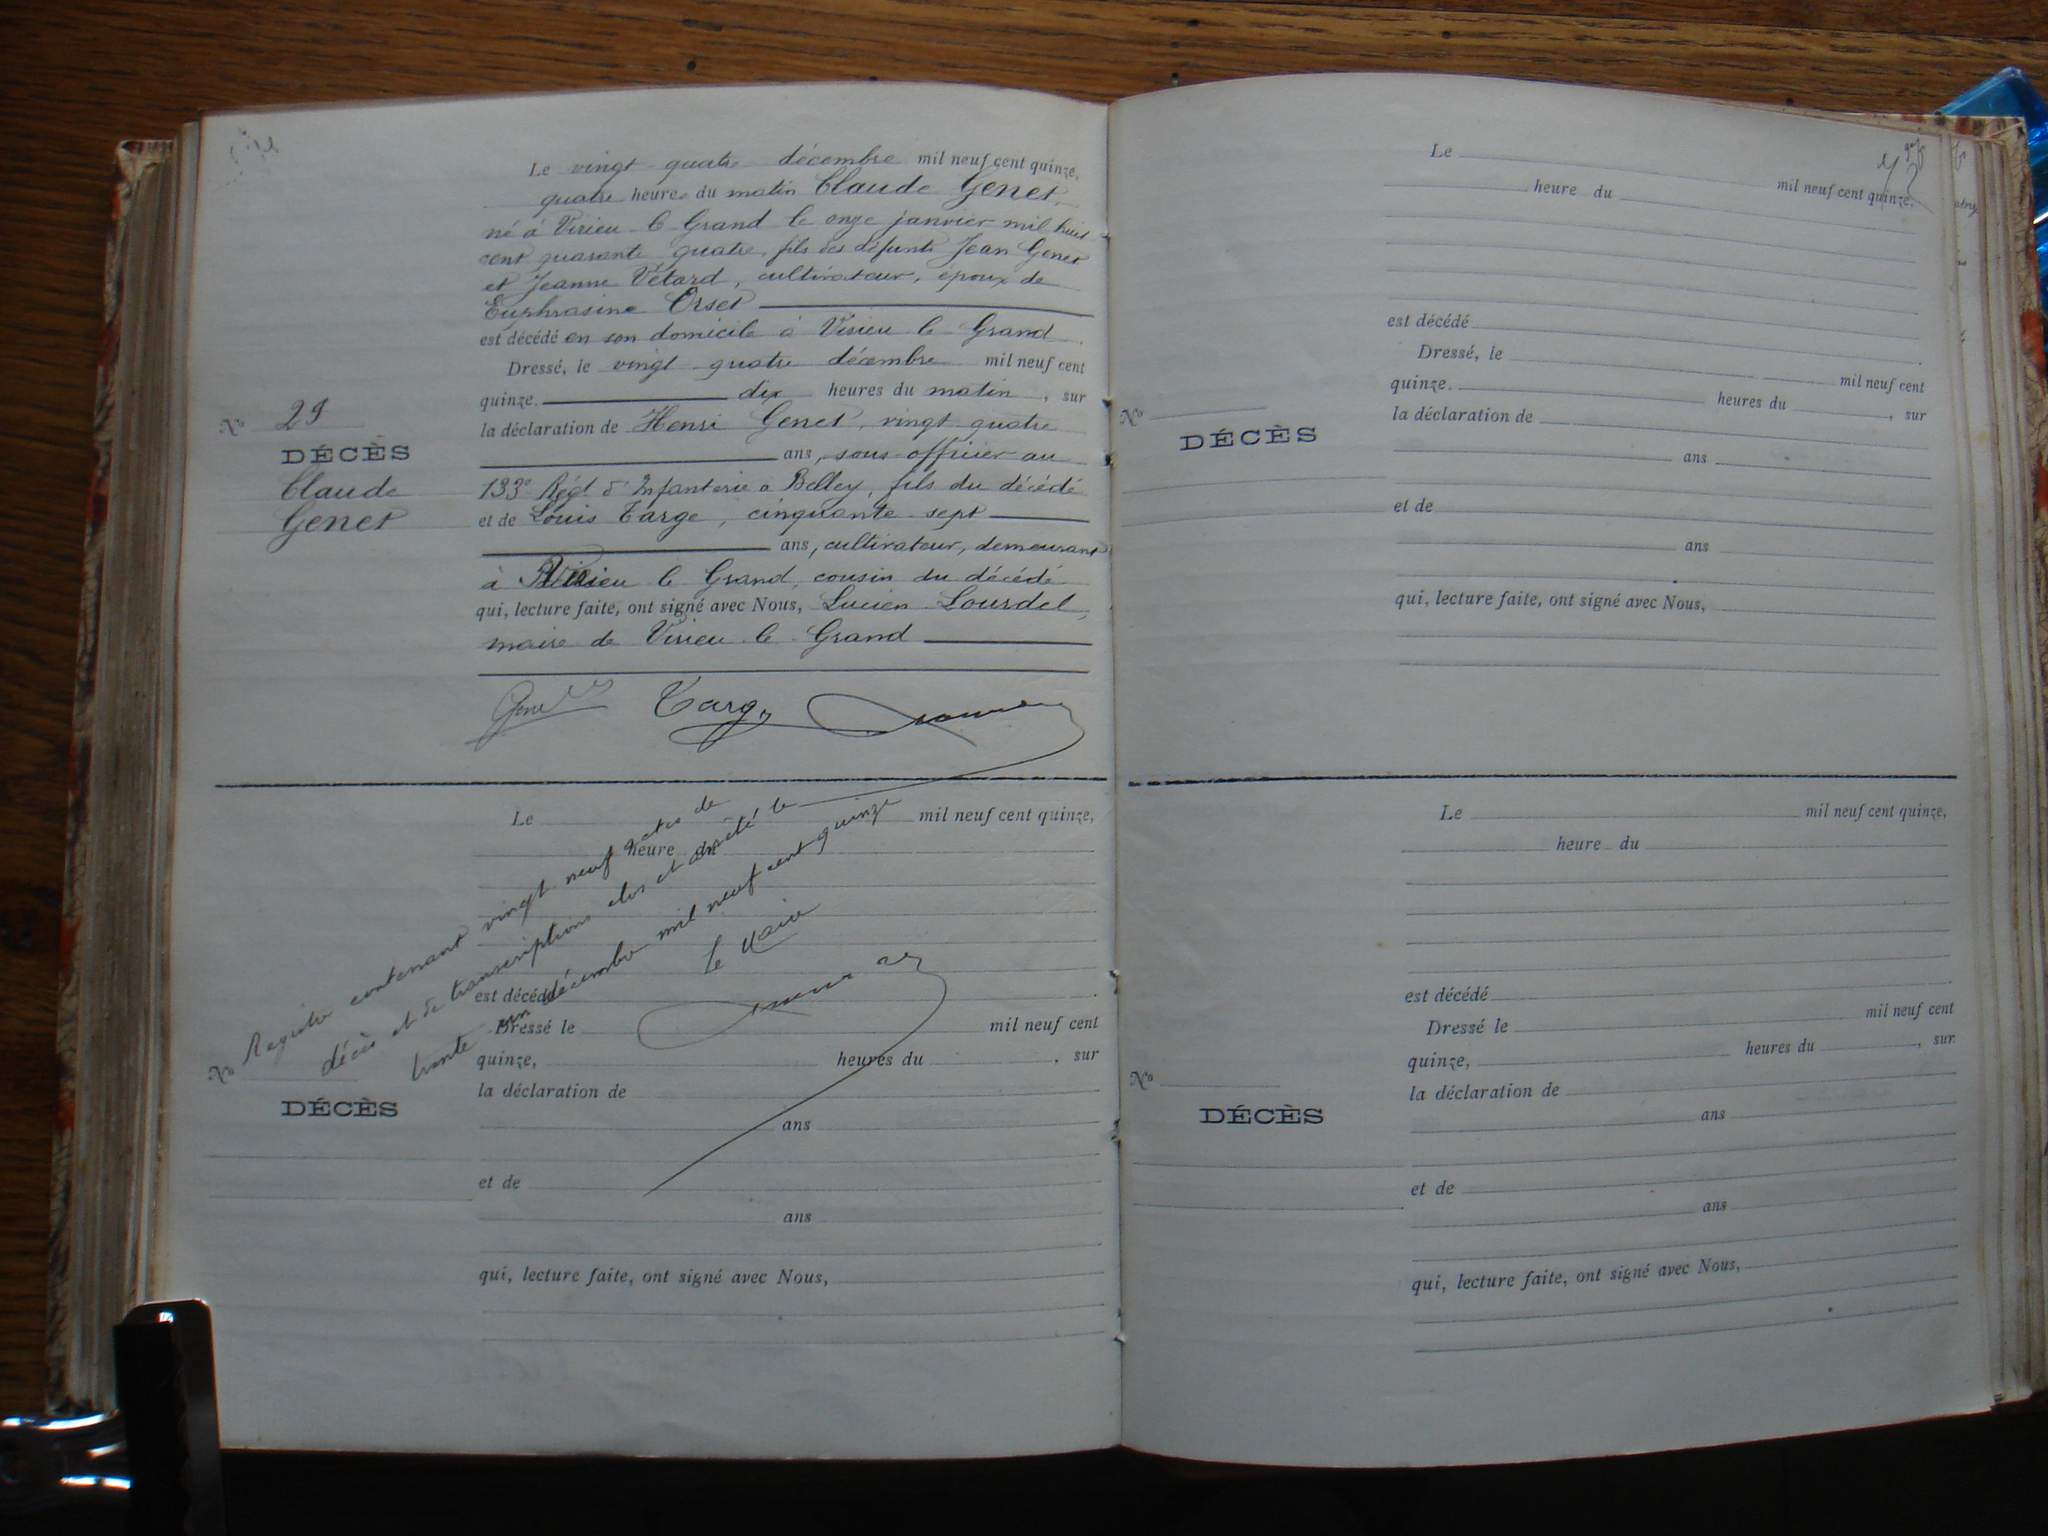 Le vingt quatre décembre mil neuf cent quinze,
quatre heures du matin Claude Genet,
né à Virieu le Grand le onze janvier mil huit
cent quarante quatre, fils des défunts Jean Genet
et Jeanne Vétard, cultivateur, époux de
Euphrasine Orset
est décédé en son domicile à Virieu le Grand.
Dressé, le vingt quatre décembre mil neuf cent
quinze. dix heures du matin, sur
la déclaration de Henri Genet, vingt quatre
ans, sous-officier au
133e Régt d'Infanterie à Belley, fils du décédé
et de Louis Targe, cinquante sept
ans, cultivateur, demeurant
à Virieu le Grand, cousin du décédé
qui, lecture faite, ont signé avec Nous, Lucien Lourdel,
maire de Virieu le Grand
No 29
DÉCÈS
Claude
Genet
Genet Targe
Le mil neuf cent quinze,
heure du
est décédé
Dressé le mil neuf cent
quinze, heures du , sur
la déclaration de
ans
et de
ans
qui, lecture faite, ont signé avec Nous,
No
DÉCÈS
Registre contenant vingt neuf actes de
décès et de transcriptions clos et arrêté le
trente un décembre mil neuf cent quinze
Le Maire
Le mil neuf cent quinze.
heure du
est décédé
Dressé, le mil neuf cent
quinze. heures du , sur
la déclaration de
ans
et de
ans
qui, lecture faite, ont signé avec Nous,
No
DÉCÈS
Le mil neuf cent quinze,
heure du
est décédé
Dressé le mil neuf cent
quinze, heures du , sur
la déclaration de
ans
et de
ans
qui, lecture faite, ont signé avec Nous,
No
DÉCÈS